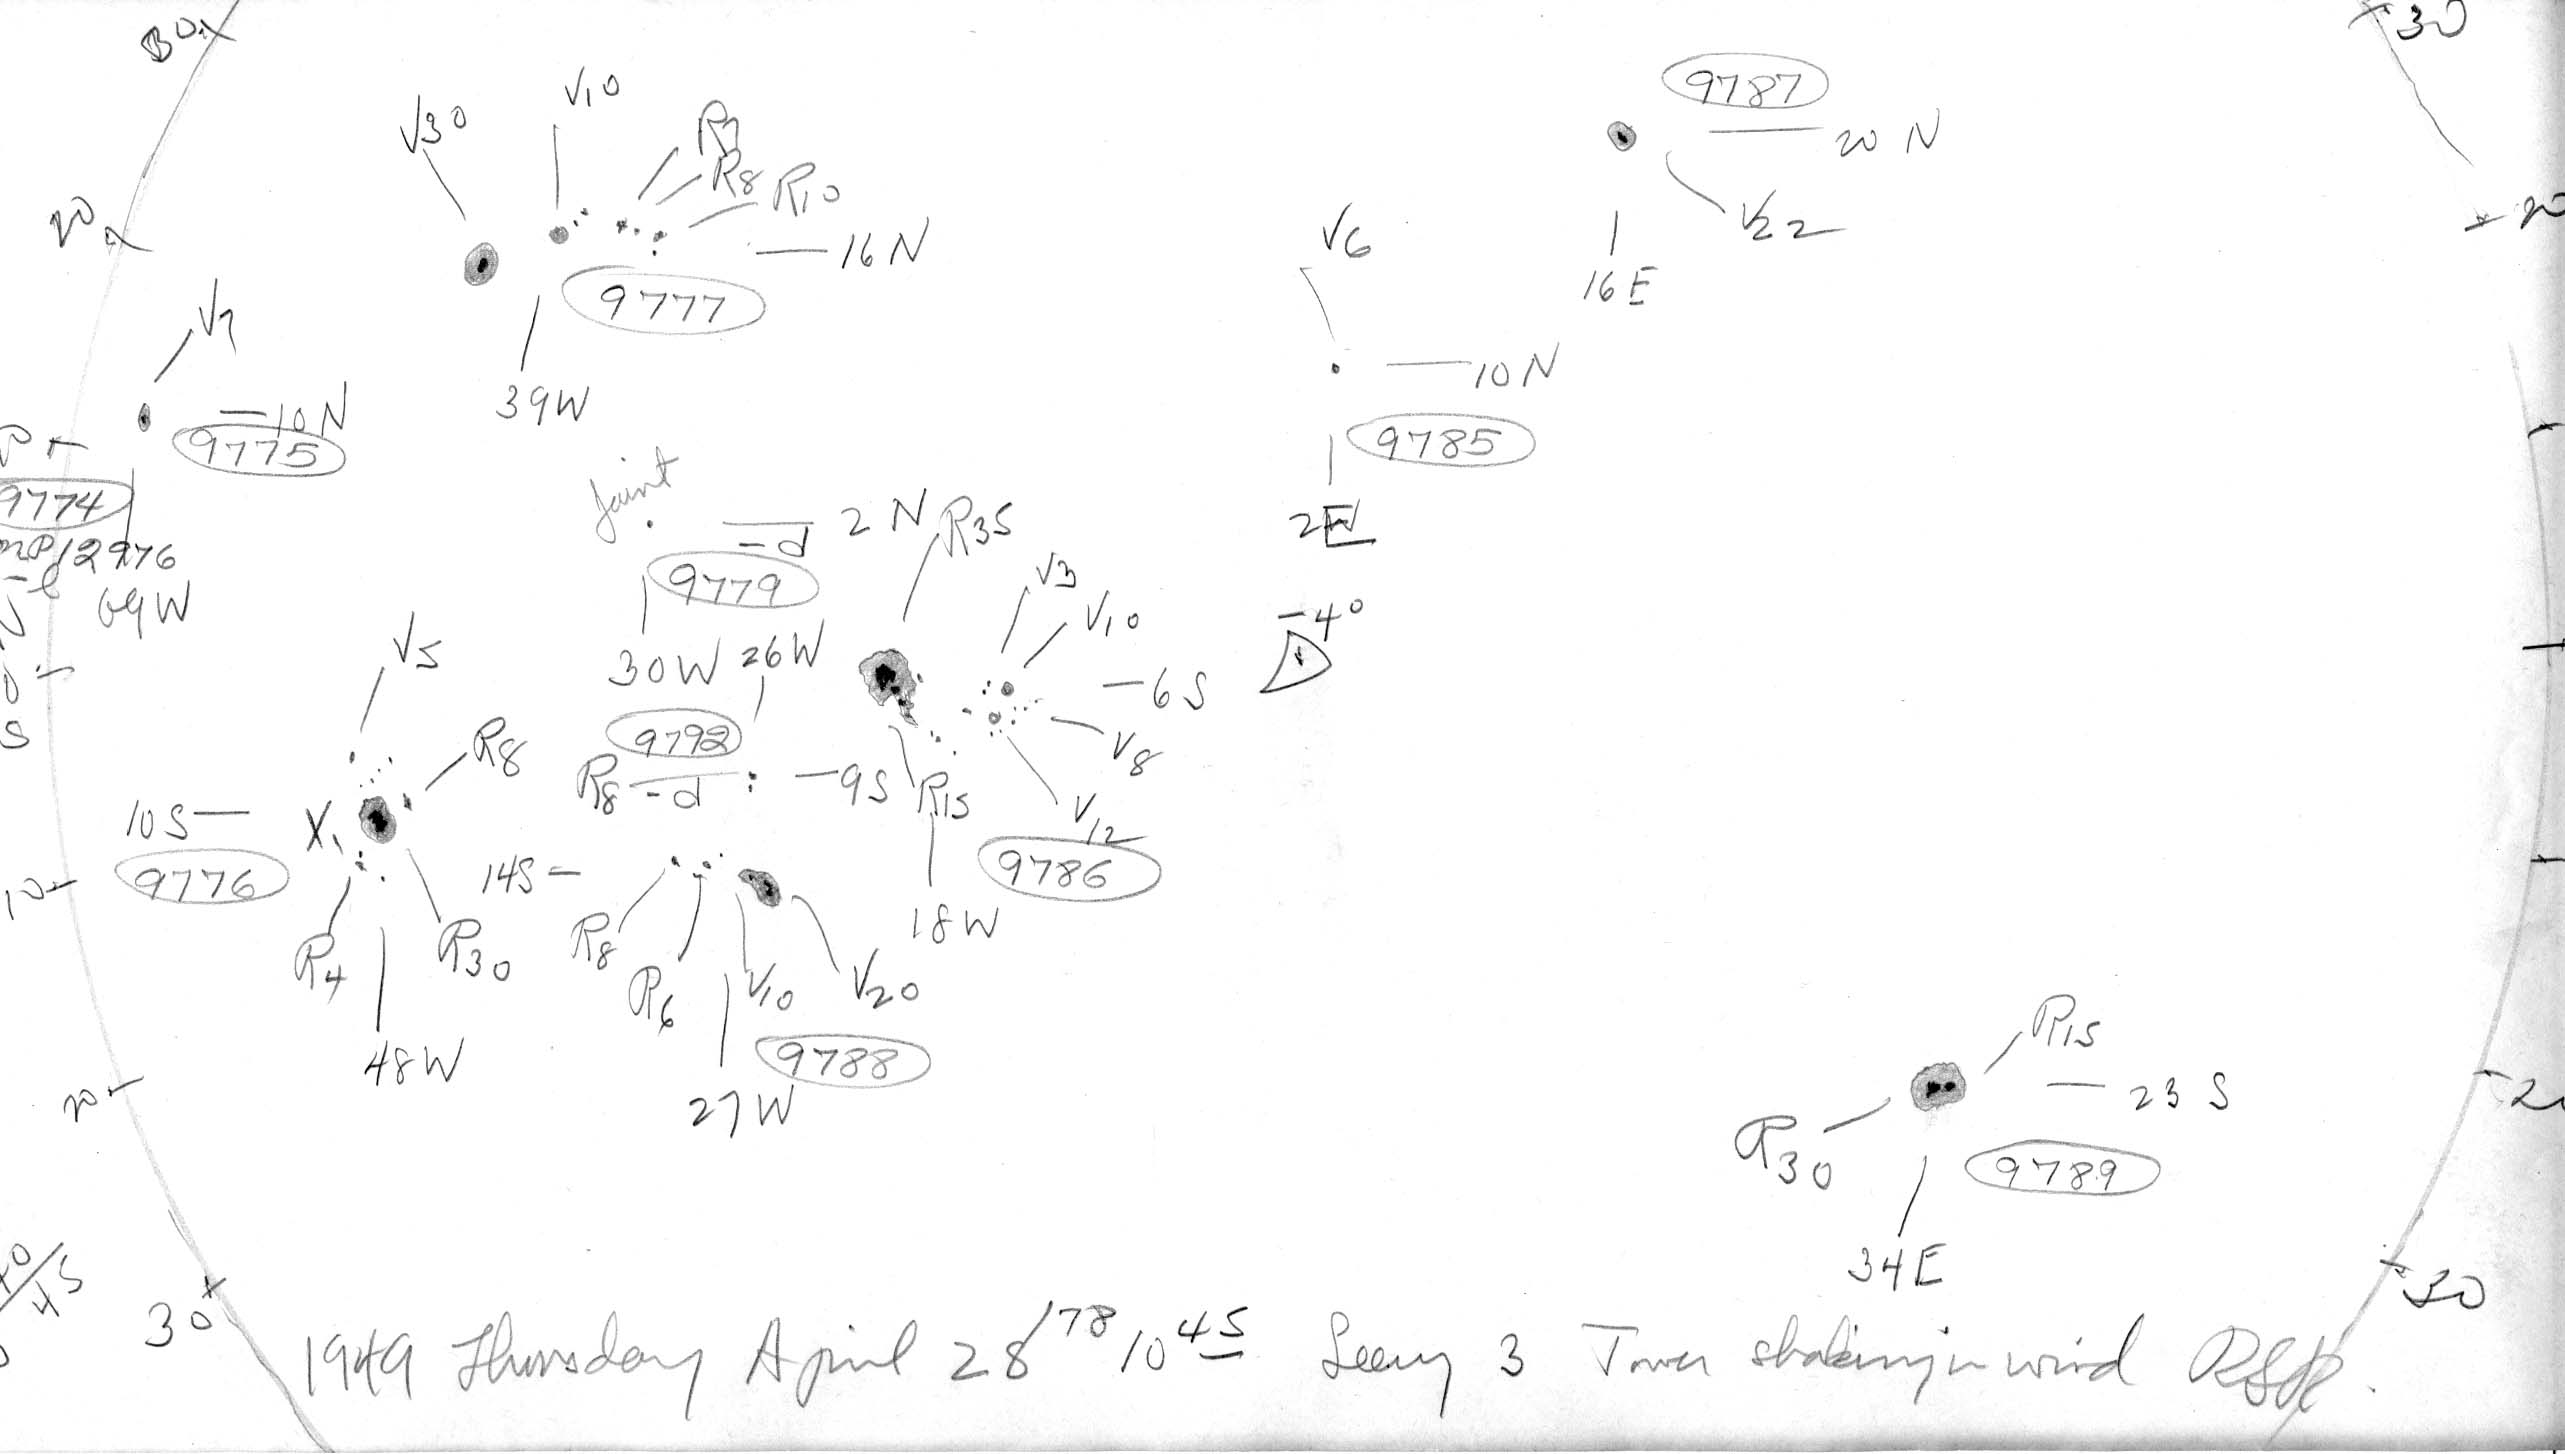 30
30
9787
V10
V30
R7
20 N
R8
R10
20
20
V22
V6
16 N
16 E
9777
V7
10 N
39W
10 N
9785
9775
faint
9774
2 N
R35
2E
-d
V3
9779
69W
V10
-4°
V5
30W
26W
6 S
9792
R8
V8
R8 -d
9S
R15
10S
X1
V12
9776
14S
9786
10
18W
R4
R30
R8
R6
V10
V20
R15
48W
9788
20
23 S
27W
R30
9789
34E
40/45
30
30
1949 Thursday April 28 .78 / 10 45 Seeing 3 Tower shaking in wind